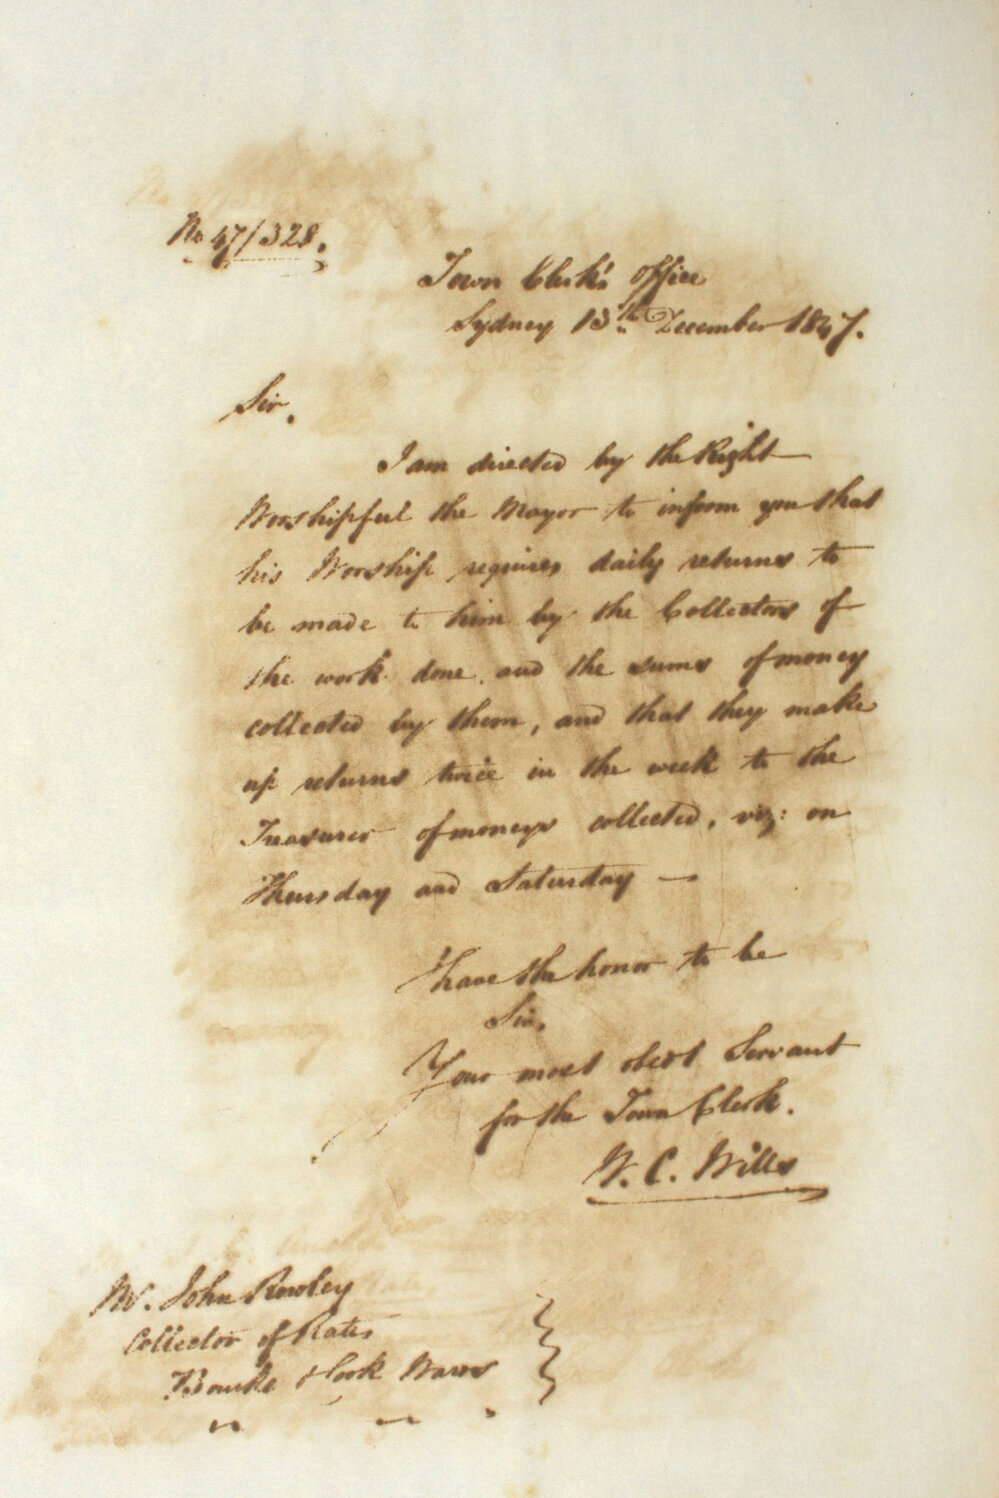 No 47/328.
Town Clerk's Office
Sydney 13th December 1847.
Sir,
I am directed by the Right
Worshipful the Mayor to inform you that
his Worship requires daily returns to
be made to him by the Collectors of
the work done, and the sums of money
collected by them, and that they make
up returns twice in the week to the
Treasurer of moneys collected, viz: on
Thursday and Saturday —
I have the honor to be
Sir,
Your most obedt Servant
for the Town Clerk.
W. C. Wills
Mr. John Rowley
Collector of Rates
Bourke & Cook Wards